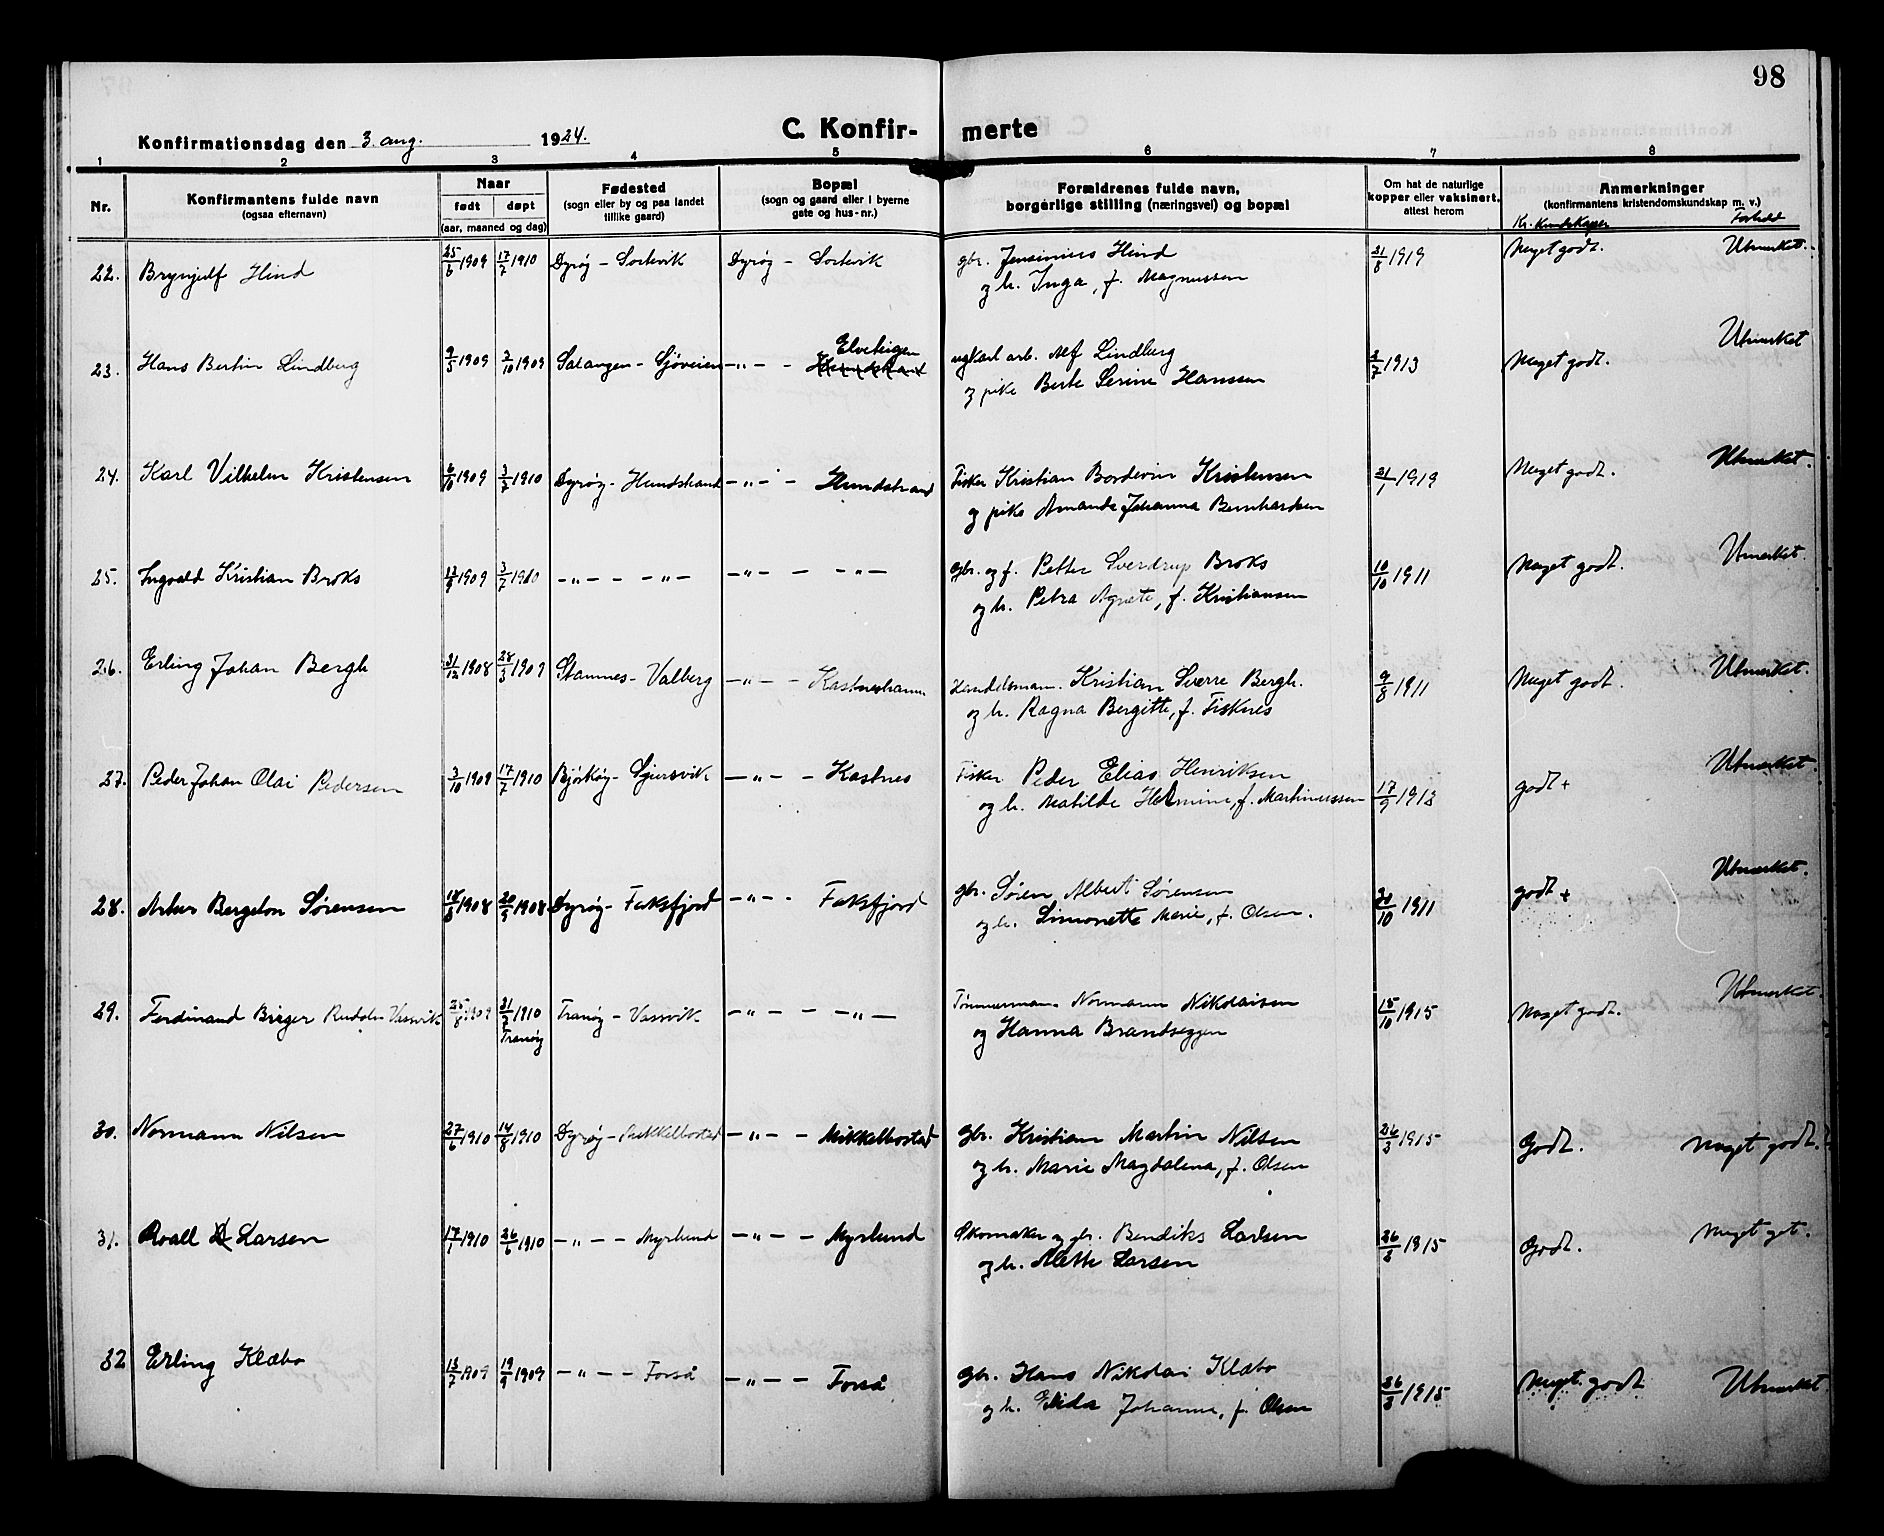 98
C. Konfir- merte
Konfirmationsdag den 3. aug. 1924.
1 2 3 4 5 6 7 8
Nr.
Konfirmantens fulde navn
(ogsaa efternavn)
Naar
født døpt
(aar, maaned og dag)
Fødested
(sogn eller by og paa landet
tillike gaard)
Bopæl
(sogn og gaard eller i byerne
gate og hus-nr.)
Forældrenes fulde navn,
borgerlige stilling (næringsvei) og bopæl
Om hat de naturlige
kopper eller vaksinert,
attest herom
Anmerkninger
(konfirmantens kristendomskundskap m. v.)
Kr. Kundskaper Forhold
22. Brynjulf Hind 25/6 1909 17/7 1910 Dyrøy - Sortvik Dyrøy - Sortvik gbr. Jensinius Hind 21/8 1919 Meget godt. Utmerket.
og h. Inga, f. Magnussen
Elveteigen
23. Hans Bertin Lindberg 9/5 1909 3/10 1909 Salangen - Sjøveien -"- - Hundstrand ugkarl arb. Alf Lindberg 2/7 1913 Meget godt. Utmerket
og pike Berte Serine Hanssen
24. Karl Vilhelm Kristensen 6/10 1909 3/7 1910 Dyrøy - Hundstrand -"- - Hundstrand Fisker Kristian Bordevin Kristensen 21/1 1919 Meget godt. Utmerket.
og pike Amanda Johanna Bernhardsen
25. Ingvald Kristian Broks 13/8 1909 3/7 1910 -"- - -"- -"- - -"- gbr. og f. Petter Sverdrup Broks 10/10 1911 Meget godt. Utmerket.
og h. Petra Agnete, f. Kristiansen
26. Erling Johan Bergh 31/12 1908 28/3 1909 Stamnes - Valberg -"- - Kastneshamn Handelsmann. Kristian Sverre Bergh. 9/8 1911 Meget godt. Utmerket.
og h. Ragna Bergitte, f. Fisknes
27. Peder Johan Olai Pedersen 3/10 1909 17/7 1910 Bjarkøy - -"- - Kastnes Fisker Peder Elias Henriksen 17/9 1913 godt + Utmerket.
og h. Matilde Hermine, f. Martinussen
28. Artur Bergeton Sørensen 18/8 1908 20/9 1908 Dyrøy - Faksfjord -"- - Faksfjord gbr. Søren Albert Sørensen 20/10 1911 godt + Utmerket.
og h. Simonette Marie, f. Olsen.
29. Ferdinand Birger Rudolv Vassvik 25/8 1909 31/7 1910 Tranøy - Vassvik -"- - -"- Tømmermann Normann Nikolaisen 15/10 1915 Meget godt. Utmerket.
Tranøy
og Hanna Brandseggen
30. Normann Nilsen 27/6 1910 14/8 1910 Dyrøy - Mikkelbostad -"- - Mikkelbostad gbr. Kristian Martin Nilsen 26/3 1915 Godt. Meget godt.
og h. Marie Magdalena, f. Olsen
31. Roall Larsen 17/1 1910 26/6 1910 -"- - Myrlund -"- - Myrlund Skomaker og gbr. Bendiks Larsen 26/3 1915 Godt. Meget get.
og h. Alette Larsen
32 Erling Klæbo 13/7 1909 19/9 1909 -"- - Forså -"- - Forså gbr. Hans Nikolai Klæbo 26/3 1915 Meget godt Utmerket
og h. Elida Johanne, f. Olsen